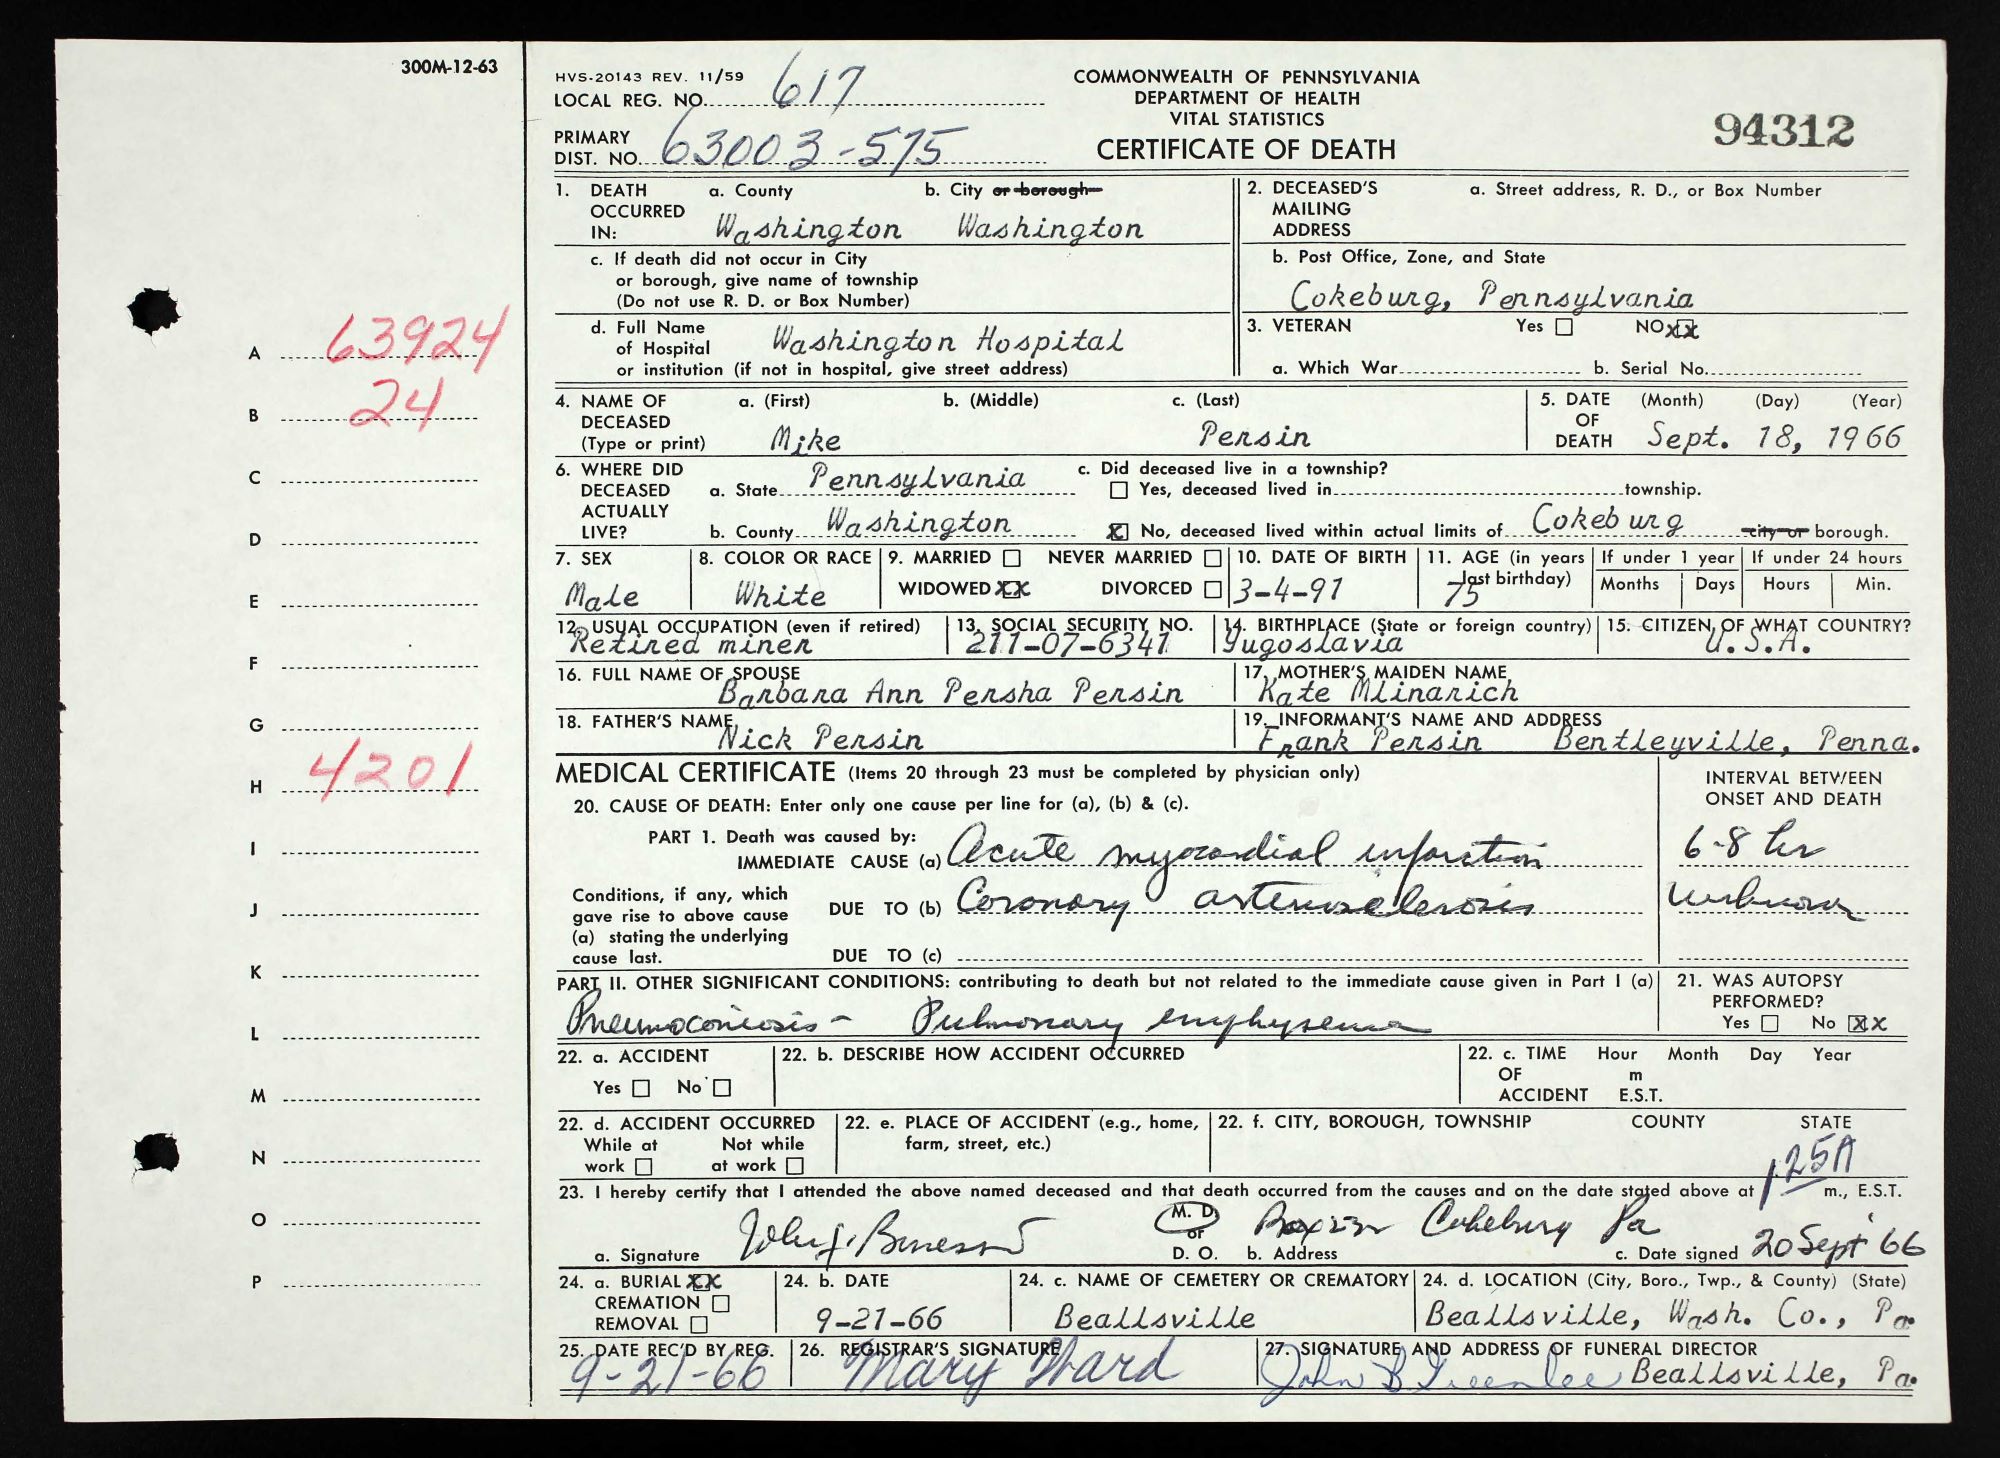 300M-12-63
HVS-20143 REV. 11/59
LOCAL REG. NO. 617
PRIMARY DIST. NO. 63003-575
COMMONWEALTH OF PENNSYLVANIA
DEPARTMENT OF HEALTH
VITAL STATISTICS
CERTIFICATE OF DEATH
94312
A 63924
B 24
C
D
E
F
G
H 4201
I
J
K
L
M
N
O
P
1. DEATH OCCURRED IN: a. County Washington b. City or borough Washington
c. If death did not occur in City
or borough, give name of township
(Do not use R. D. or Box Number)
d. Full Name of Hospital Washington Hospital
or institution (if not in hospital, give street address)
2. DECEASED'S MAILING ADDRESS a. Street address, R. D., or Box Number
b. Post Office, Zone, and State
Cokeburg, Pennsylvania
3. VETERAN Yes NO XX
a. Which War b. Serial No.
4. NAME OF DECEASED (Type or print) a. (First) Mike b. (Middle) c. (Last) Persin
5. DATE OF DEATH (Month) (Day) (Year) Sept. 18, 1966
6. WHERE DID DECEASED ACTUALLY LIVE? a. State Pennsylvania
b. County Washington
c. Did deceased live in a township?
Yes, deceased lived in township.
X No, deceased lived within actual limits of Cokeburg city or borough.
7. SEX Male
8. COLOR OR RACE White
9. MARRIED NEVER MARRIED
WIDOWED XX DIVORCED
10. DATE OF BIRTH 3-4-91
11. AGE (in years last birthday) 75
If under 1 year Months Days
If under 24 hours Hours Min.
12. USUAL OCCUPATION (even if retired) Retired miner
13. SOCIAL SECURITY NO. 211-07-6341
14. BIRTHPLACE (State or foreign country) Yugoslavia
15. CITIZEN OF WHAT COUNTRY? U.S.A.
16. FULL NAME OF SPOUSE Barbara Ann Persha Persin
17. MOTHER'S MAIDEN NAME Kate Mlinarich
18. FATHER'S NAME Nick Persin
19. INFORMANT'S NAME AND ADDRESS Frank Persin Bentleyville, Penna.
MEDICAL CERTIFICATE (Items 20 through 23 must be completed by physician only)
INTERVAL BETWEEN ONSET AND DEATH
20. CAUSE OF DEATH: Enter only one cause per line for (a), (b) & (c).
PART 1. Death was caused by:
IMMEDIATE CAUSE (a) Acute myocardial infarction 6-8 hr
Conditions, if any, which
gave rise to above cause
(a) stating the underlying
cause last.
DUE TO (b) Coronary arteriosclerosis unknown
DUE TO (c)
PART II. OTHER SIGNIFICANT CONDITIONS: contributing to death but not related to the immediate cause given in Part I (a)
Pneumoconiosis - Pulmonary emphysema
21. WAS AUTOPSY PERFORMED?
Yes No XX
22. a. ACCIDENT
Yes No
22. b. DESCRIBE HOW ACCIDENT OCCURRED
22. c. TIME OF ACCIDENT Hour Month Day Year
m E.S.T.
22. d. ACCIDENT OCCURRED
While at work Not while at work
22. e. PLACE OF ACCIDENT (e.g., home, farm, street, etc.)
22. f. CITY, BOROUGH, TOWNSHIP COUNTY STATE
23. I hereby certify that I attended the above named deceased and that death occurred from the causes and on the date stated above at 1:25A m., E.S.T.
a. Signature John J.
M. D. or D. O. b. Address Cokeburg Pa
c. Date signed 20 Sept 66
24. a. BURIAL XX
CREMATION
REMOVAL
24. b. DATE
9-21-66
24. c. NAME OF CEMETERY OR CREMATORY
Beallsville
24. d. LOCATION (City, Boro., Twp., & County) (State)
Beallsville, Wash. Co., Pa.
25. DATE REC'D BY REG. 9-21-66
26. REGISTRAR'S SIGNATURE Mary Ward
27. SIGNATURE AND ADDRESS OF FUNERAL DIRECTOR
John B Greenlee Beallsville, Pa.